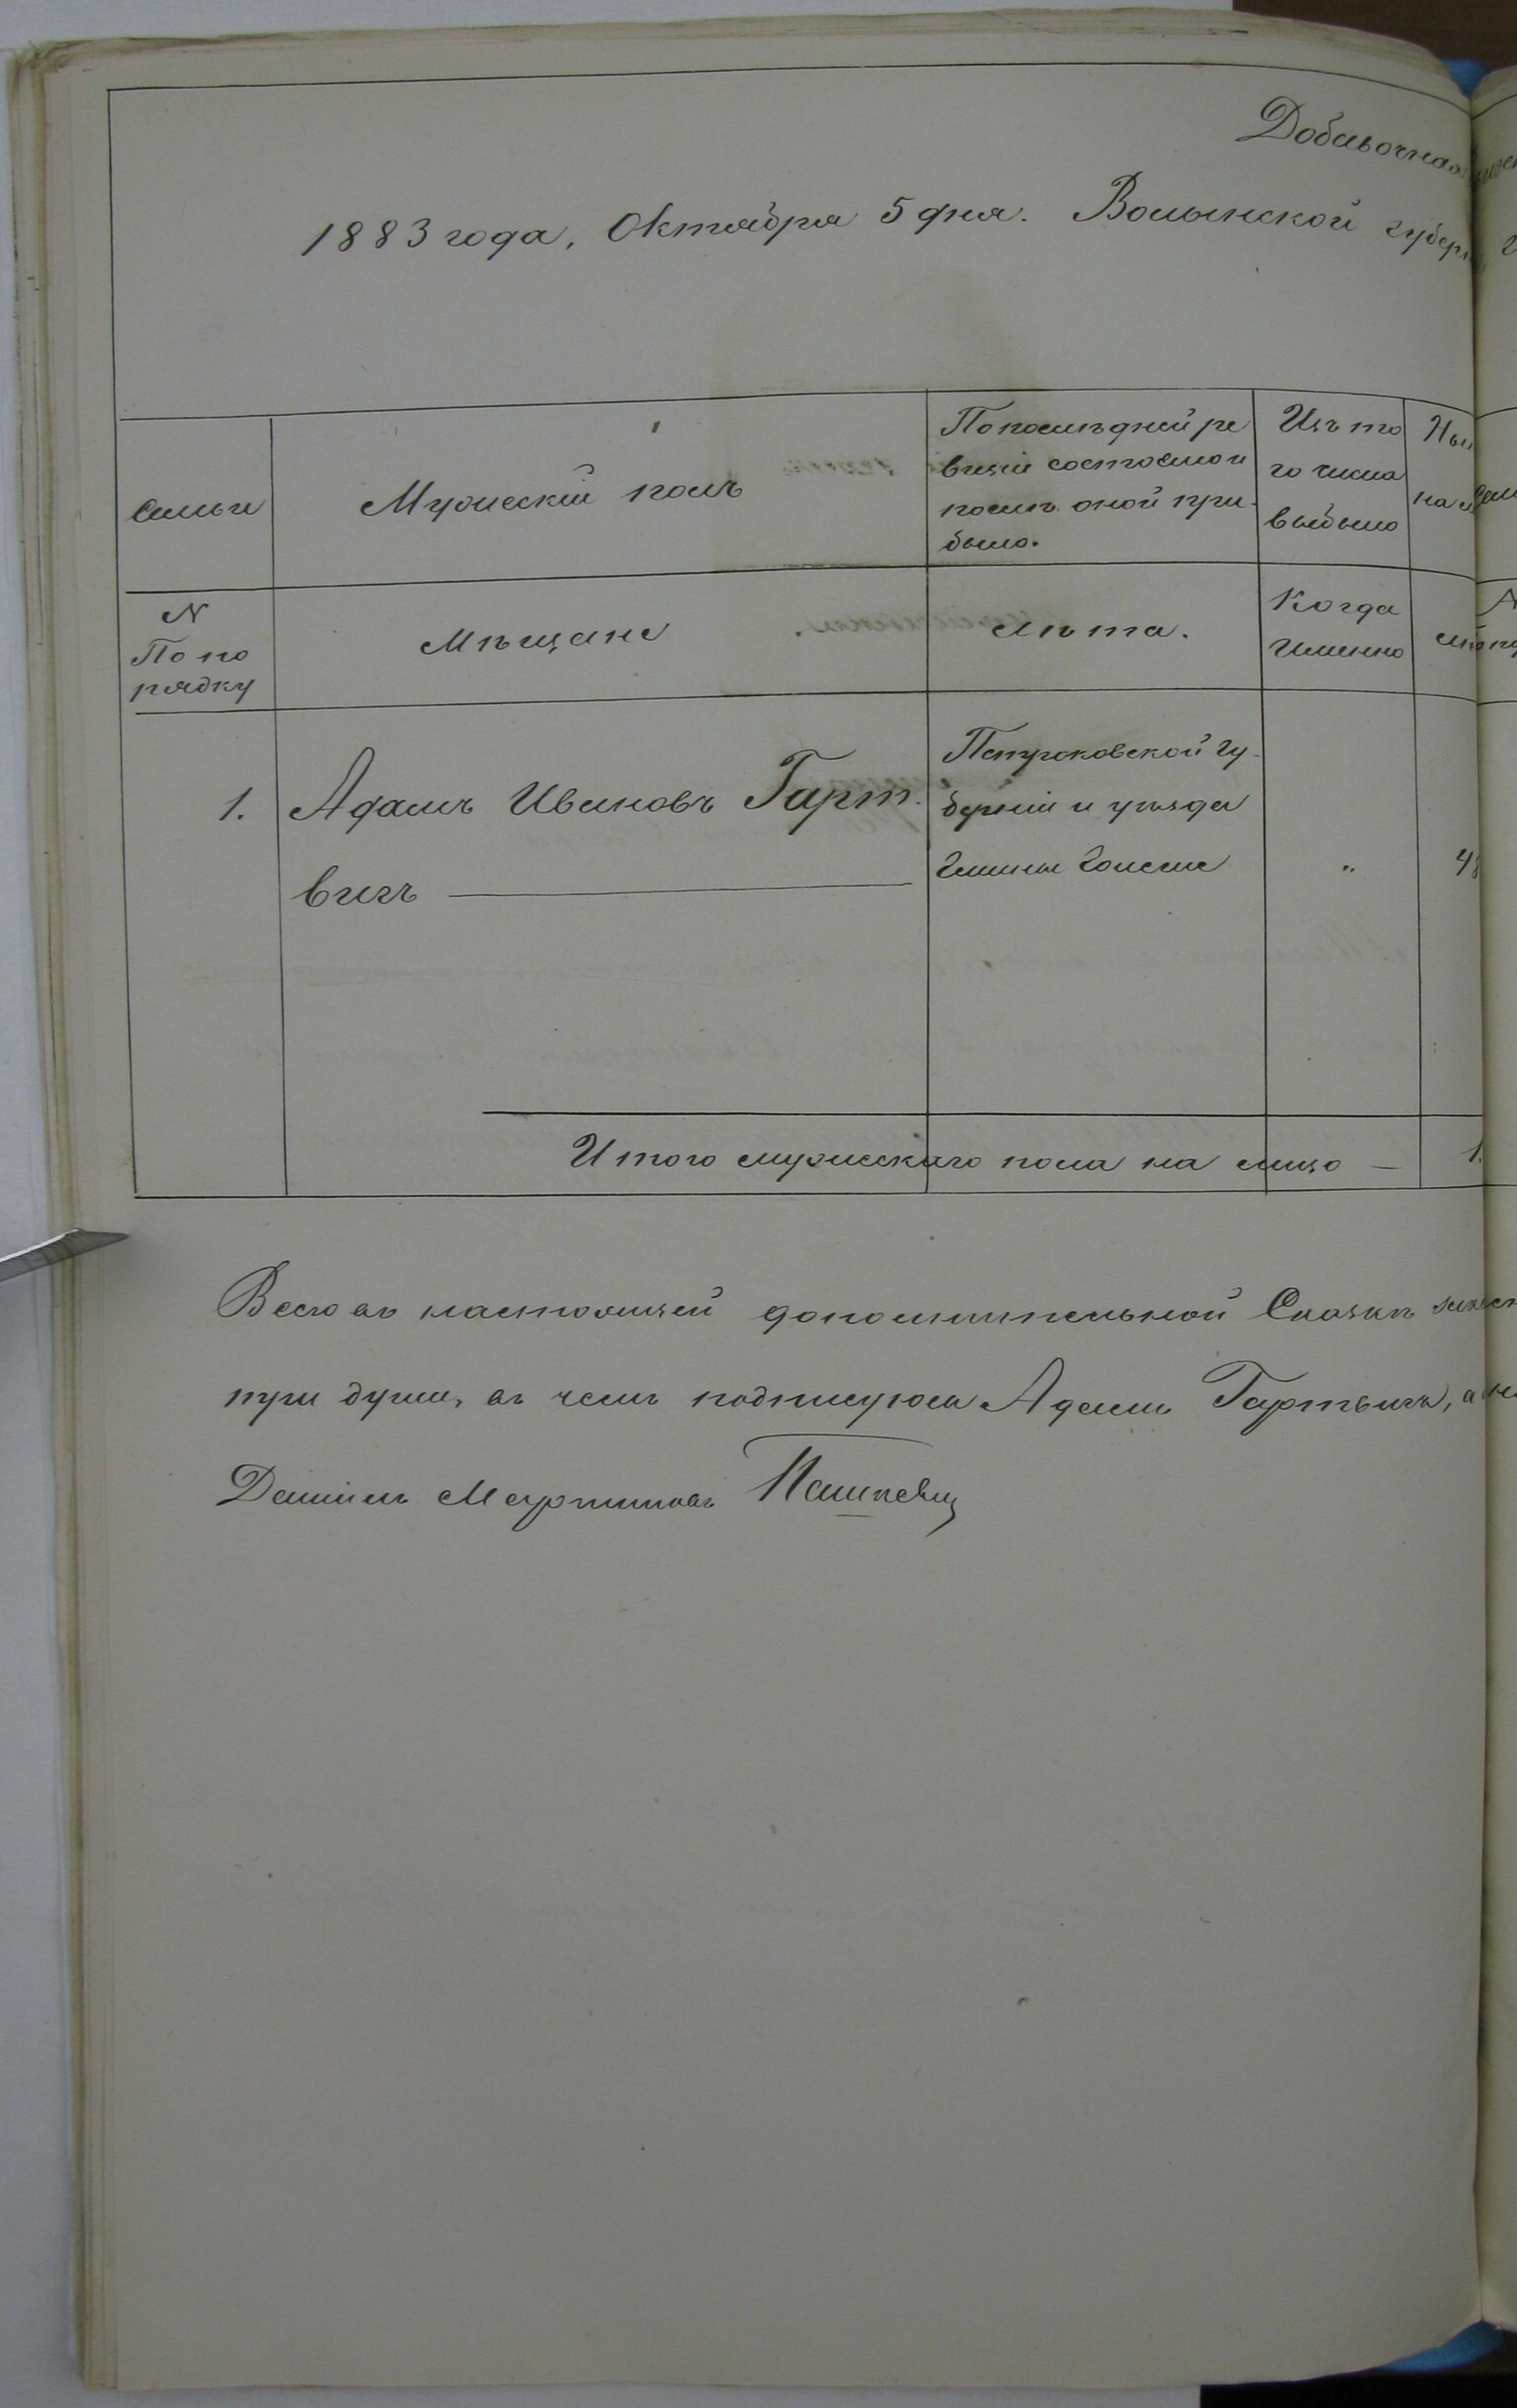 Добавочная
1883 года, Октября 5 дня. Волынской губерн
Семьи
Мужескій полъ
По послѣдней ре
визіи состояло и
послѣ оной при-
было.
Изъ то
го числа
выбыло
Нын
на л
N
По по
рядку
Мѣщане
лѣта.
Когда
Именно
1.
Адамъ Ивановъ Гарт-
вигъ
Петроковской Гу-
берніи и уѣзда
Гмины
"
48
Итого мужескаго пола на лицо —
1.
Всего въ настоящей дополнительной Сказкѣ
три души, въ чемъ подписуюсь Адамъ Гартвигъ, а
Даніилъ Мартиновъ Пашкевич